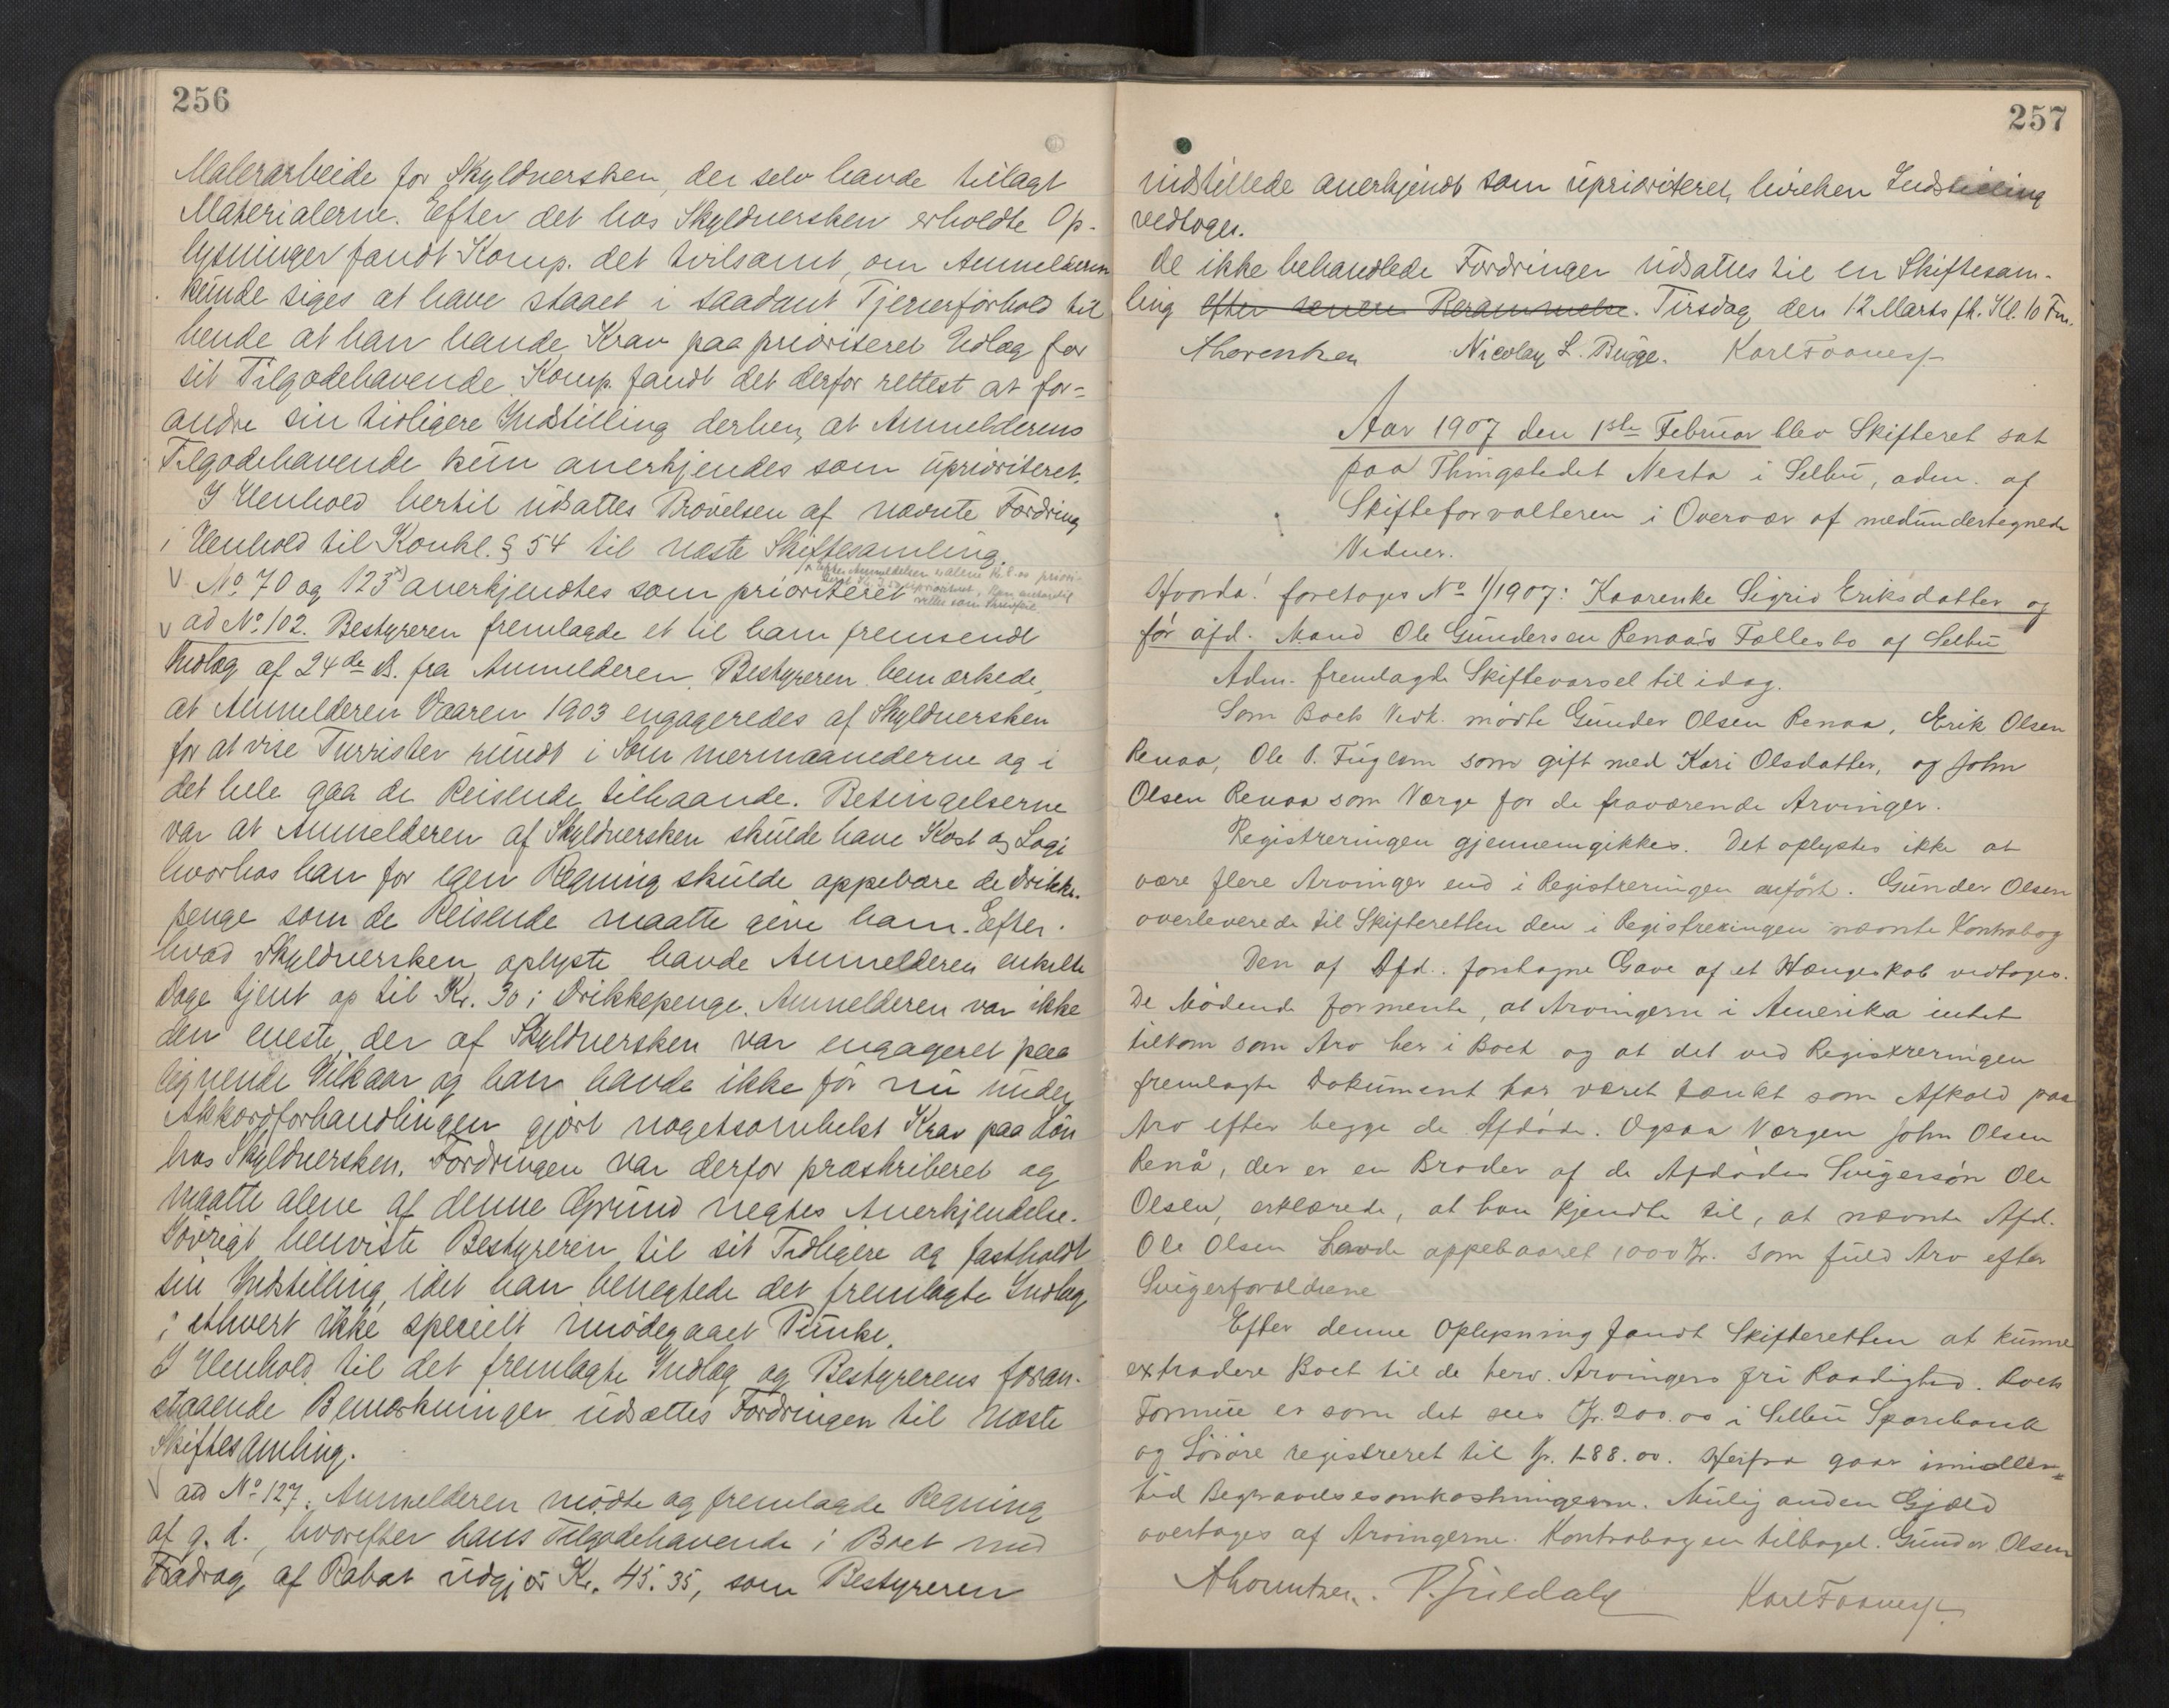 256
Malerarbeide for Skyldnersken, der selv havde tillagt
Materialerne. Efter det hos Skyldnersken erholdte Op-
lysninger fandt Komp. det tvilsomt, om Anmelderen
kunde siges at have staaet i saadant Tjenerforhold til
hende at han havde Krav paa prioriteret Udlæg for
sit Tilgodehavende. Komp. fandt det derfor rettest at for-
andre sin tidligere Indstilling derhen, at Anmelderens
Tilgodehavende kun anerkjendes som uprioriteret.
I Henhold hertil udsattes Prøvelsen af nævnte Fordring
i Henhold til Konkl. § 54 til næste Skiftesamling.
No. 70 og 123 x) anerkjendtes som prioriteret
ad No. 102. Bestyreren fremlagde et til ham fremsendt
Indlæg af 24de ds. fra Anmelderen. Bestyreren bemærkede,
at Anmelderen Vaaren 1903 engageredes af Skyldnersken
for at vise Turrister rundt i Sommermaanederne og i
det hele gaa de Reisende tilhaande. Betingelserne
var at Anmelderen af Skyldnersken skulde have Kost og Logi
hvorhos han for egen Regning skulde oppebære de Drikke-
penge som de Reisende maatte give ham. Efter
hvad Skyldnersken oplyste havde Anmelderen enkelte
Dage tjent op til Kr. 30 i Drikkepenge. Anmelderen var ikke
den eneste, der af Skyldnersken var engageret paa
lignende Vilkaar og han havde ikke før nu under
Akkordforhandlingen gjort nogetsomhelst Krav paa Løn
hos Skyldnersken. Fordringen var derfor præskriberet og
maatte alene af denne Grund negtes Anerkjendelse.
Iøvrigt henviste Bestyreren til sit Tidligere og fastholdt
sin Indstilling idet han benegtede det fremlagte Indlæg
i ethvert ikke specielt imødegaaet Punkt.
I Henhold til det fremlagte Indlæg og Bestyrerens foran-
staaende Bemærkninger udsættes Fordringen til næste
Skiftesamling.
ad No. 127. Anmelderen mødte og fremlagde Regning
af g. d., hvorefter hans Tilgodehavende i Boet med
Fradrag af Rabat udgjør Kr. 45.35, som Bestyreren
257
indstillede anerkjendt som uprioriteret, hvilken Indstilling
vedtoges.
De ikke behandlede Fordringer udsattes til en Skiftesam-
ling efter senere Berammelse. Tirsdag den 12 Marts fk. Kl. 10 Fm.
Nicolay L. Bugge. Karl Faanes
Aar 1907 den 1ste Februar blev Skifteret sat
paa Thingstedet Nesta i Selbu, adm. af
Skifteforvalteren i Overvær af medundertegnede
Vidner.
Hvorda! foretoges No 1/1907: Kaarenke Sigrid Eriksdatter og
før afd. Mand Ole Gundersen Renaas Fællesbo af Selbu
Adm. fremlagde Skiftevarsel til idag.
Som Boets Vedk. mødte Gunder Olsen Renaa, Erik Olsen
Renaa, Ole P. Fuglem som gift med Kari Olsdatter, og John
Olsen Renaa som Værge for de fraværende Arvinger.
Registreringen gjennemgikkes. Det oplystes ikke at
være flere Arvinger end i Registreringen anført. Gunder Olsen
overleverede til Skifteretten den i Registreringen nævnte Kontrabog
Den af Afd. foretagne Gave af et Hængeskab vedtoges.
De Mødende formente, at Arvingerne i Amerika intet
tilkom som Arv her i Boet og at det ved Registreringen
fremlagte Dokument har været tænkt som Afkald paa
Arv efter begge de Afdøde. Ogsaa Værgen John Olsen
Renå, der er en Broder af de Afdødes Svigersøn Ole
Olsen, erklærede, at han kjendte til, at nævnte Afd.
Ole Olsen havde oppebaaret 1000 Kr. som fuld Arv efter
Svigerforældrene
Efter denne Oplysning fandt Skifteretten at kunne
extradere Boet til de herv. Arvingers fri Raadighed. Boets
Formue er som det sees Kr. 200.00 i Selbu Sparebank
og Løsøre registreret til Kr. 188.00. Herfra gaar imidler-
tid Begravelsesomkostningerne. Mulig anden Gjæld
overtages af Arvingerne. Kontrabogen tilbagel. Gunder Olsen
Karl Faanes